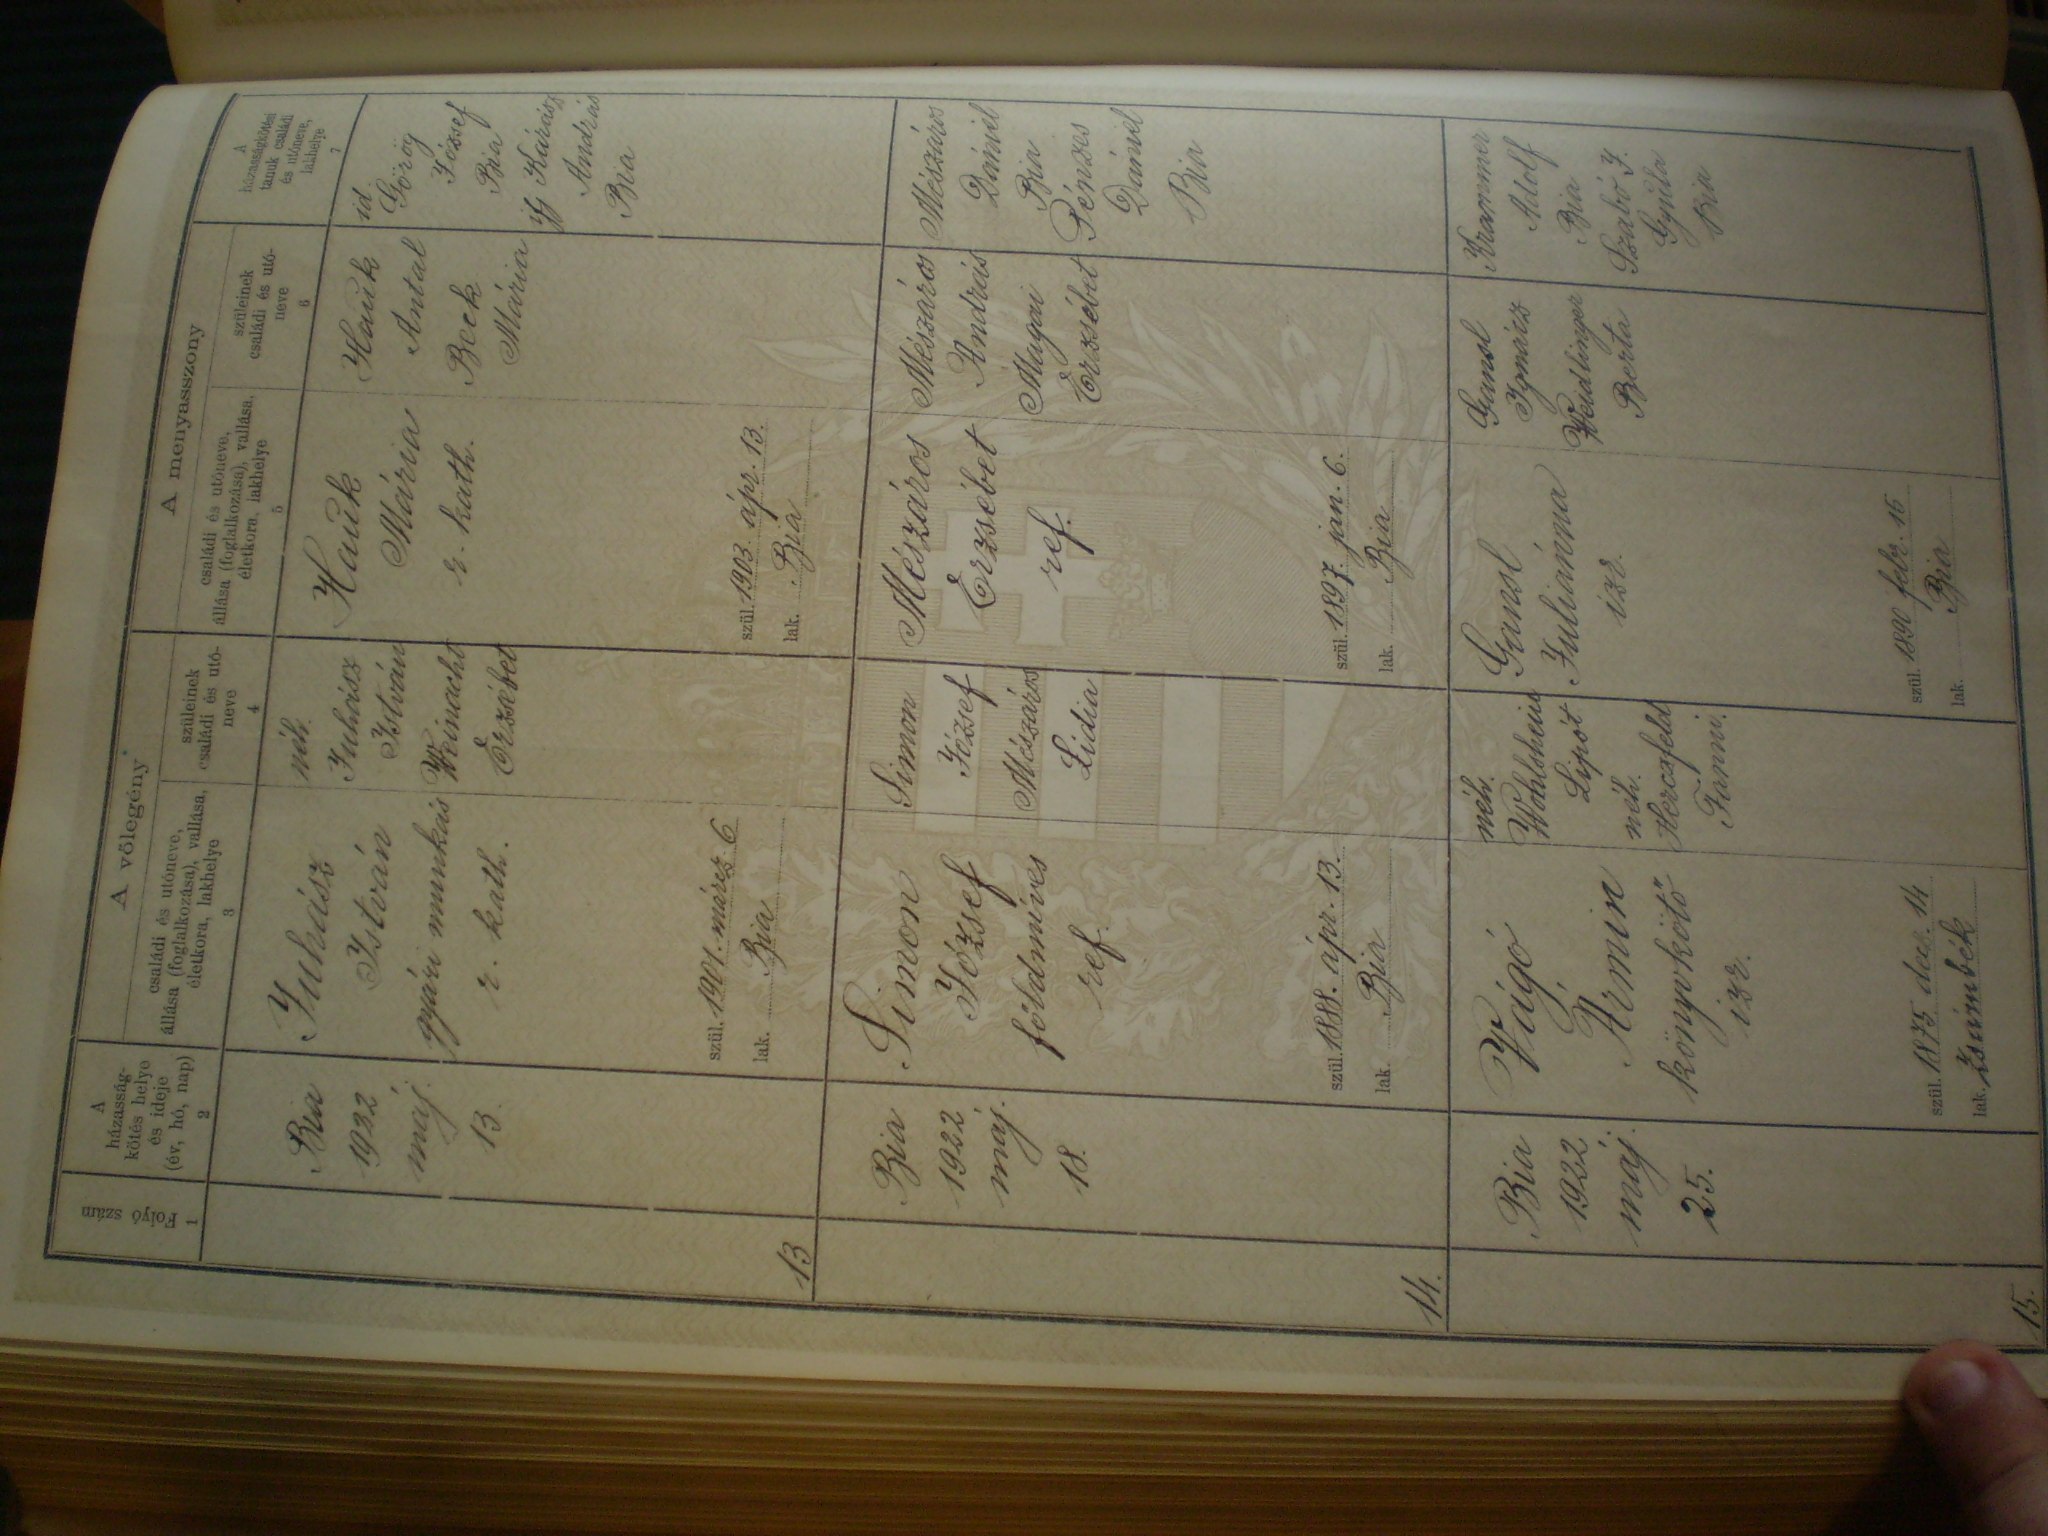 A
házasság-
kötés helye
és ideje
(év, hó, nap)
A vőlegény
A menyasszony
A
házasságkötési
tanuk családi
és utóneve,
lakhelye
Folyó szám
családi és utóneve,
állása (foglalkozása), vallása,
életkora, lakhelye
szüleinek
családi és utó-
neve
családi és utóneve,
állása (foglalkozása), vallása,
életkora, lakhelye
szüleinek
családi és utó-
neve
1
2
3
4
5
6
7
13
Bia
1922
máj.
13.
Juhász
István
gyári munkás
r. kath.
szül. 1901. márcz. 6
lak. Bia
néh.
Juhász
István
Weinacht
Erzsébet
Hauk
Mária
r. kath.
szül. 1903. ápr. 13.
lak. Bia
Hauk
Antal
Beck
Mária
id.
Görög
József
Bia
ifj Kárász
András
Bia
14.
Bia
1922
máj.
18.
Simon
József
földmíves
ref.
szül. 1888. ápr. 13.
lak. Bia
Simon
József
Mészáros
Lidia
Mészáros
Erzsébet
ref.
szül. 1897. jan. 6.
lak. Bia
Mészáros
András
Magai
Erzsébet
Mészáros
Dániel
Bia
Pénzes
Dániel
Bia
15.
Bia
1922
máj.
25.
Vágó
Ármin
könyvkötő
izr.
szül. 1875 dec. 14
lak. Zsámbék
néh.
Lipót
néh.
Herczfeld
Fánni.
Gansl
Juliánna
izr.
szül. 1890 febr. 15
lak. Bia
Gansl
Ignácz
Weidlinger
Berta
Krammer
Adolf
Bia
Szabó J.
Gyula
Bia